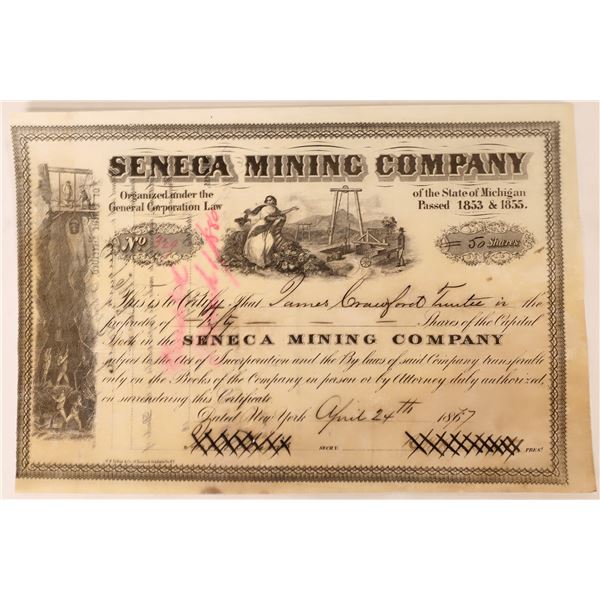 SENECA MINING COMPANY
Organized under the
General Corporation Law
of the State of Michigan
Passed 1853 & 1855.
No
50 Shares
This is to Certify that James Crawford Trustee is the
proprietor of Fifty Shares of the Capital
Stock in the SENECA MINING COMPANY
subject to the Act of Incorporation and the By laws of said Company transferable
only on the Books of the Company in person or by Attorney duly authorized,
on surrendering this Certificate
Dated New York April 24th 1867
SECRY.
PRES!